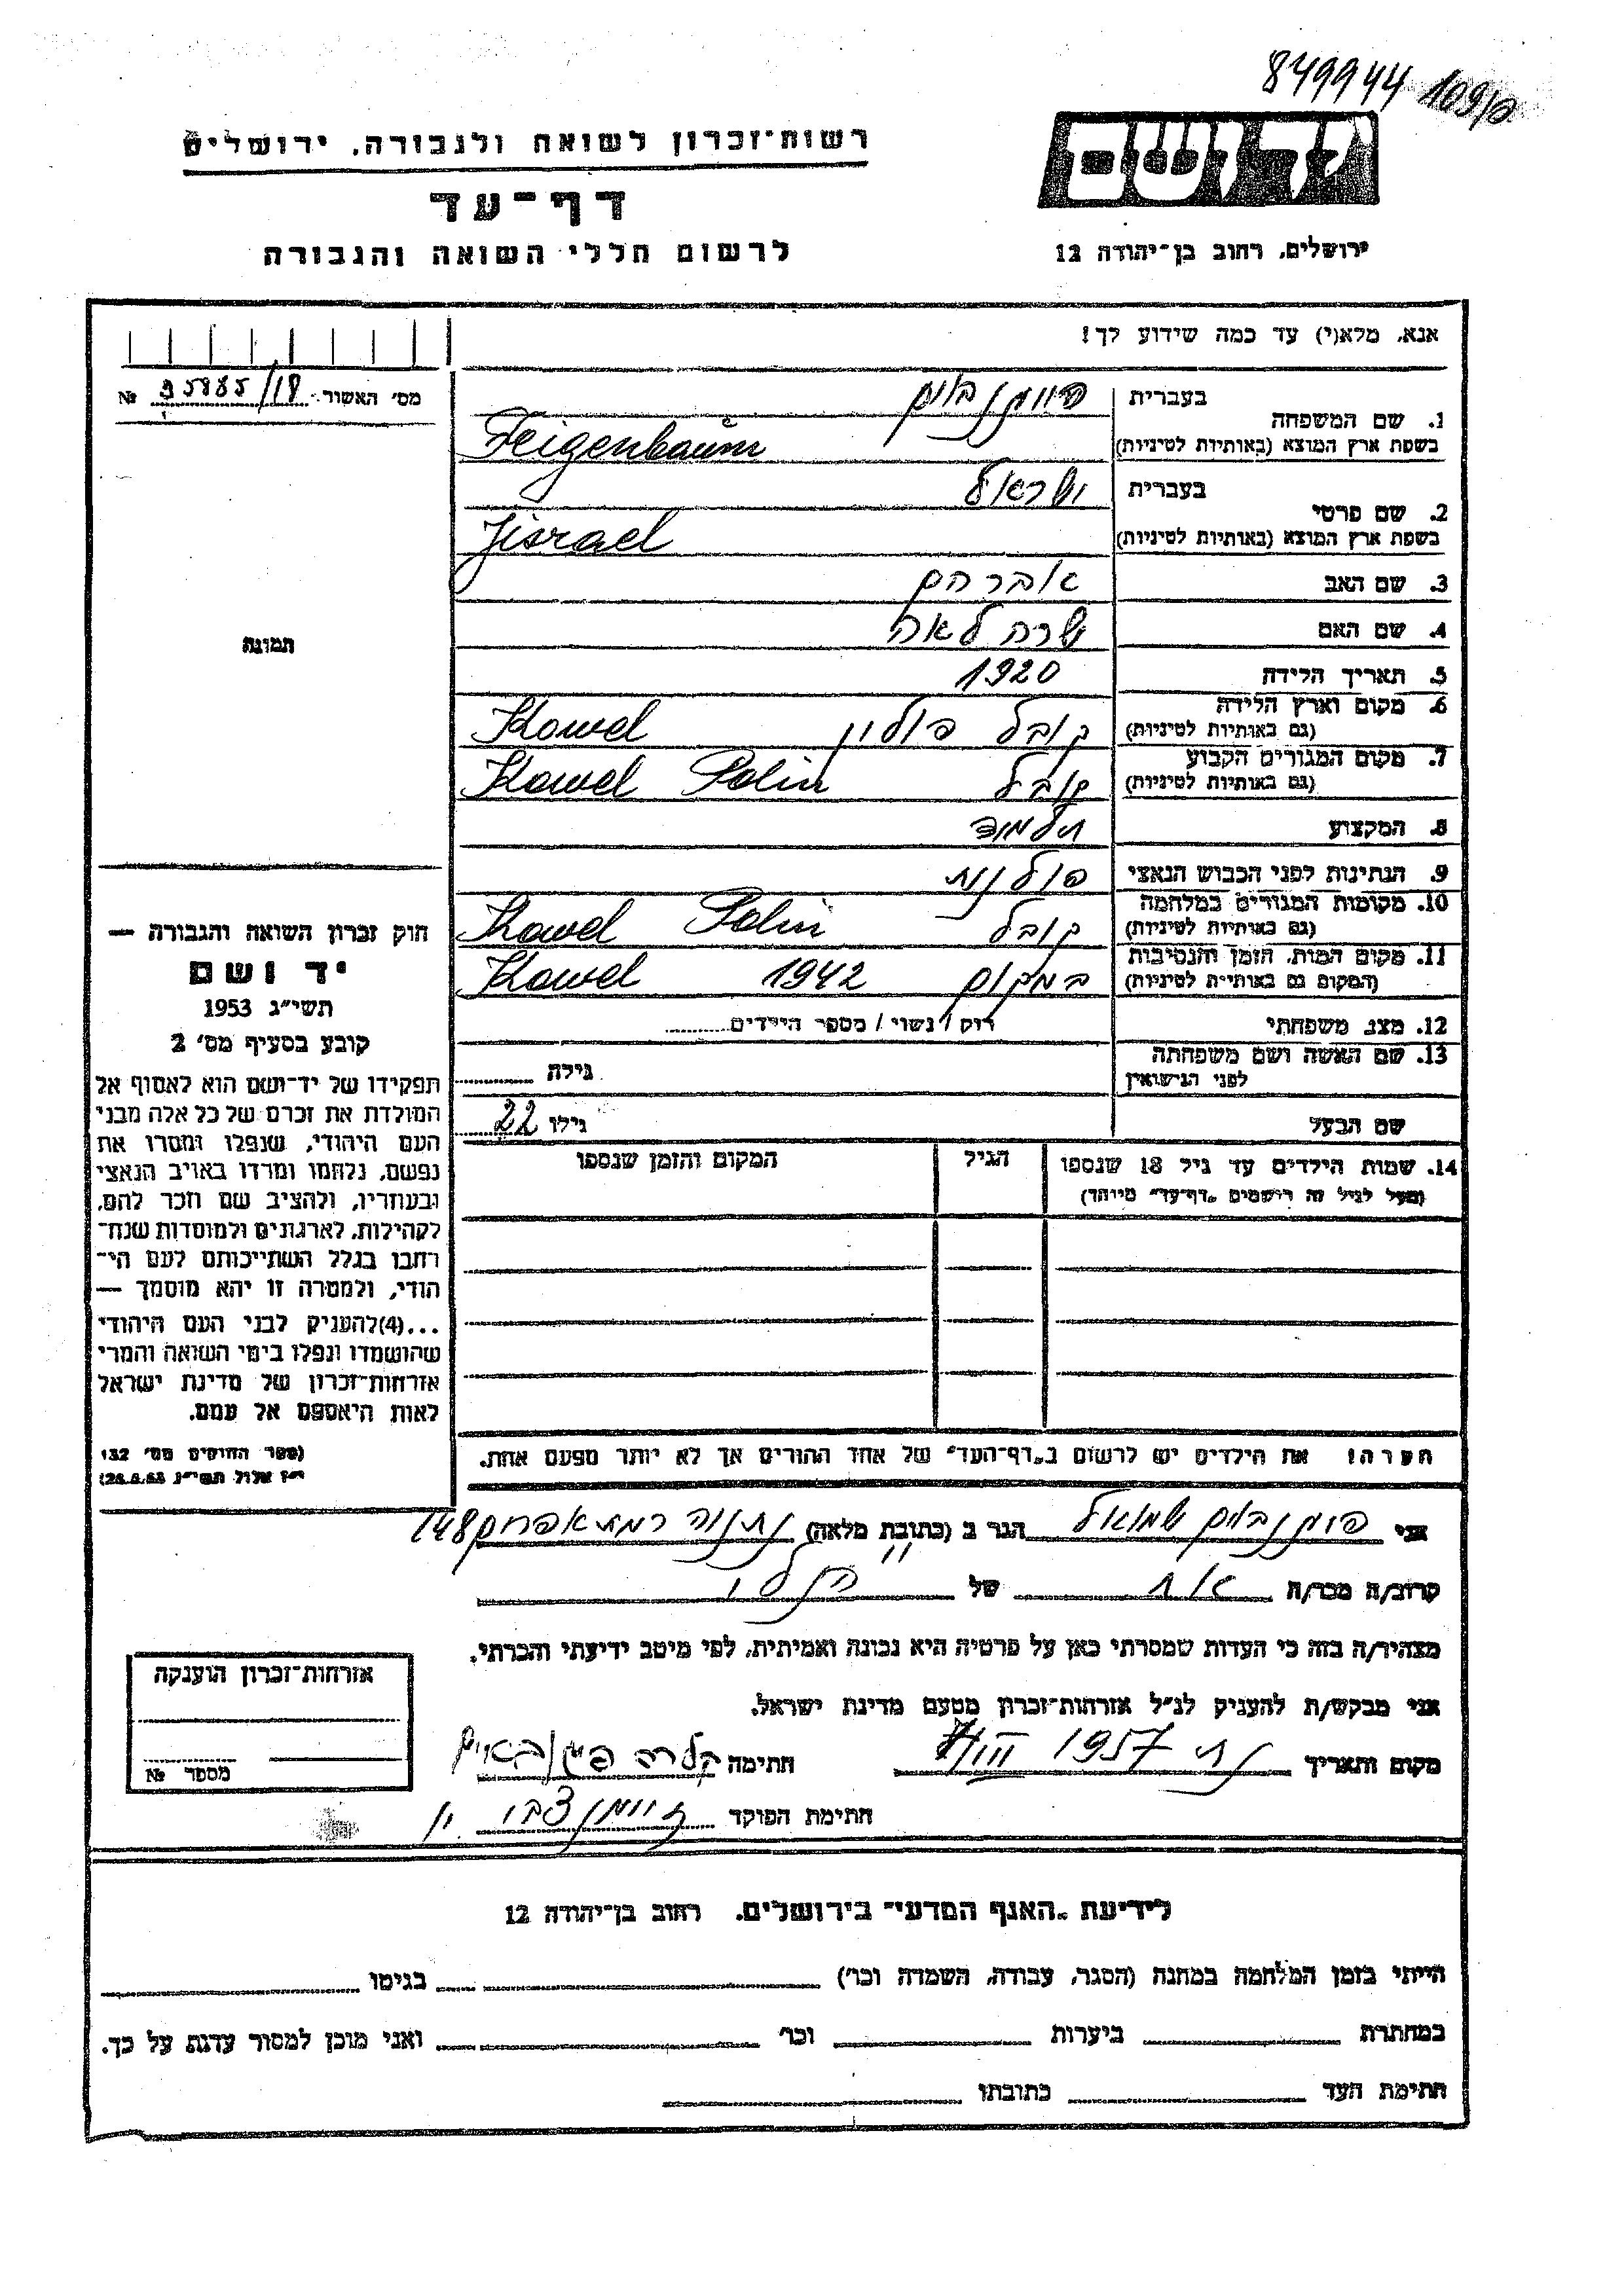 849944
רשות־זכרון לשואה ולגבורה, ירושלים
יד ושם
דף־עד
לרשום חללי השואה והגבורה
ירושלים, רחוב בן־יהודה 12
אנא, מלא(י) עד כמה שידוע לך!
מס׳ האשור
№
1. שם המשפחה
בעברית
Feigenbaum
בשפת ארץ המוצא (באותיות לטיניות)
2. שם פרטי
בעברית ישראל
Jisrael
בשפת ארץ המוצא (באותיות לטיניות)
3. שם האב אברהם
4. שם האם שרה לאה
תמונה
5. תאריך הלידה 1920
6. מקום וארץ הלידה קובל פולין Kowel
(גם באותיות לטיניות)
7. מקום המגורים הקבוע קובל Polin Kowel
(גם באותיות לטיניות)
8. המקצוע תלמיד
9. הנתינות לפני הכבוש הנאצי פולנית
10. מקומות המגורים במלחמה קובל Polin Kowel
(גם באותיות לטיניות)
11. מקום המות, הזמן והנסיבות במקום 1942 Kowel
(המקום גם באותיות לטיניות)
12. מצב משפחתי רוק / נשוי / מספר הילדים
13. שם האשה ושם משפחתה
לפני הנישואין
גילה
שם הבעל
גילו 22
14. שמות הילדים עד גיל 18 שנספו הגיל המקום והזמן שנספו
(מעל לגיל זה רושמים „דף־עד״ מיוחד)
הערה! את הילדים יש לרשום ב„דף־העד״ של אחד ההורים אך לא יותר מפעם אחת.
חוק זכרון השואה והגבורה —
יד ושם
תשי״ג 1953
קובע בסעיף מס׳ 2
תפקידו של יד־ושם הוא לאסוף אל
המולדת את זכרם של כל אלה מבני
העם היהודי, שנפלו ומסרו את
נפשם, נלחמו ומרדו באויב הנאצי
ובעוזריו, ולהציב שם וזכר להם,
לקהילות, לארגונים ולמוסדות שנח־
רבו בגלל השתייכותם לעם הי־
הודי, ולמטרה זו יהא מוסמך —
...(4)להעניק לבני העם היהודי
שהושמדו ונפלו בימי השואה והמרי
אזרחות־זכרון של מדינת ישראל
לאות היאספם אל עמם.
(ספר החוקים מס׳ 132
י״ז אלול תשי״ג
אני שמואל הגר ב (כתובת מלאה) נתניה רמת אפרים 148
קרוב/ה מכר/ה אח של הנ״ל
מצהיר/ה בזה כי העדות שמסרתי כאן על פרטיה היא נכונה ואמיתית, לפי מיטב ידיעתי והכרתי.
אני מבקש/ת להעניק לנ״ל אזרחות־זכרון מטעם מדינת ישראל.
מקום ותאריך 1957 חתימה
חתימת הפוקד
אזרחות־זכרון הוענקה
מספר №
לידיעת „האגף המדעי״ בירושלים, רחוב בן־יהודה 12
הייתי בזמן המלחמה במחנה (הסגר, עבודה, השמדה וכו׳) בגיטו
במחתרת ביערות וכו׳ ואני מוכן למסור עדות על כך.
חתימת העד כתובתו